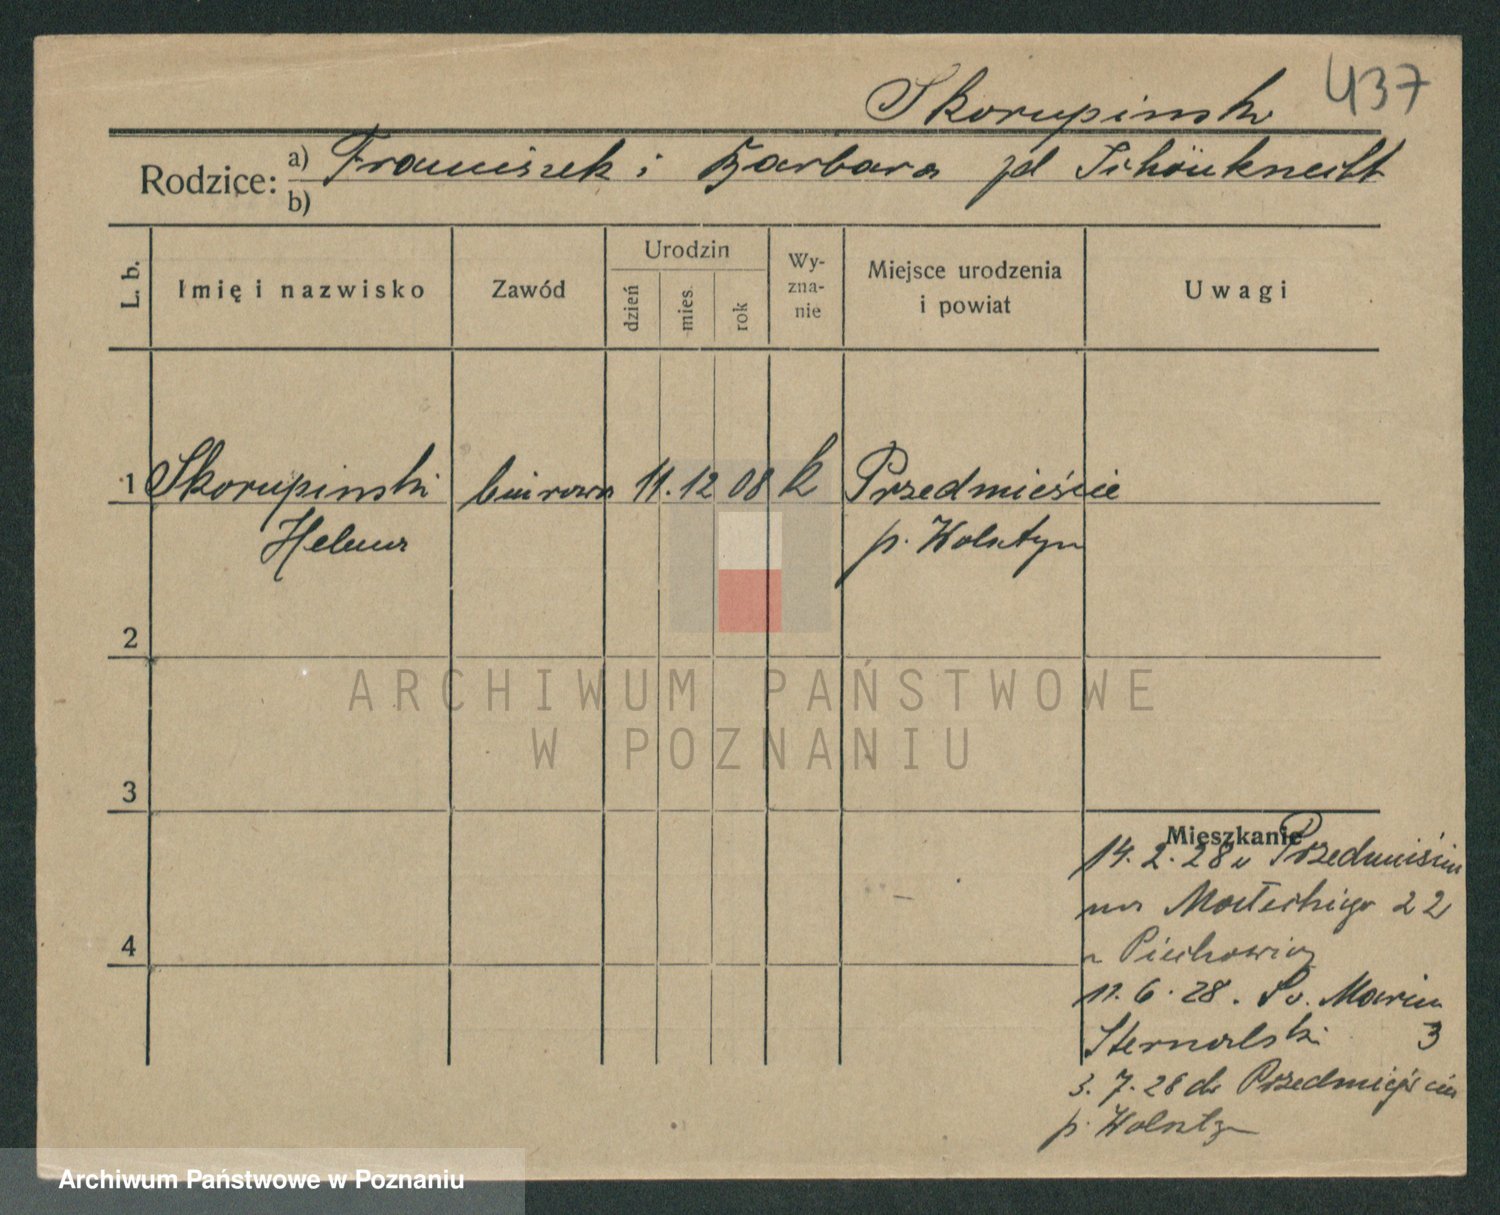 437
Skorupinski
Rodzice: a) Franciszek i Barbara zd Schönknecht
b)
L. b.
Imię i nazwisko
Zawód
Urodzin
dzień
mies.
rok
Wy-
zna-
nie
Miejsce urodzenia
i powiat
Uwagi
1 Skorupinski biurowa 11. 12 08 k Przedmieście
Helena p. Wolsztyn
2
3
4
Mieszkanie
14. 2. 28 Przedmieścia
na Małeckiego 22
Piechowiaz
11. 6. 28. Św. Marcin
Sternalski 3
3. 7. 28 do Przedmieścia
p. Wolszt
ARCHIWUM PAŃSTWOWE
W POZNANIU
Archiwum Państwowe w Poznaniu